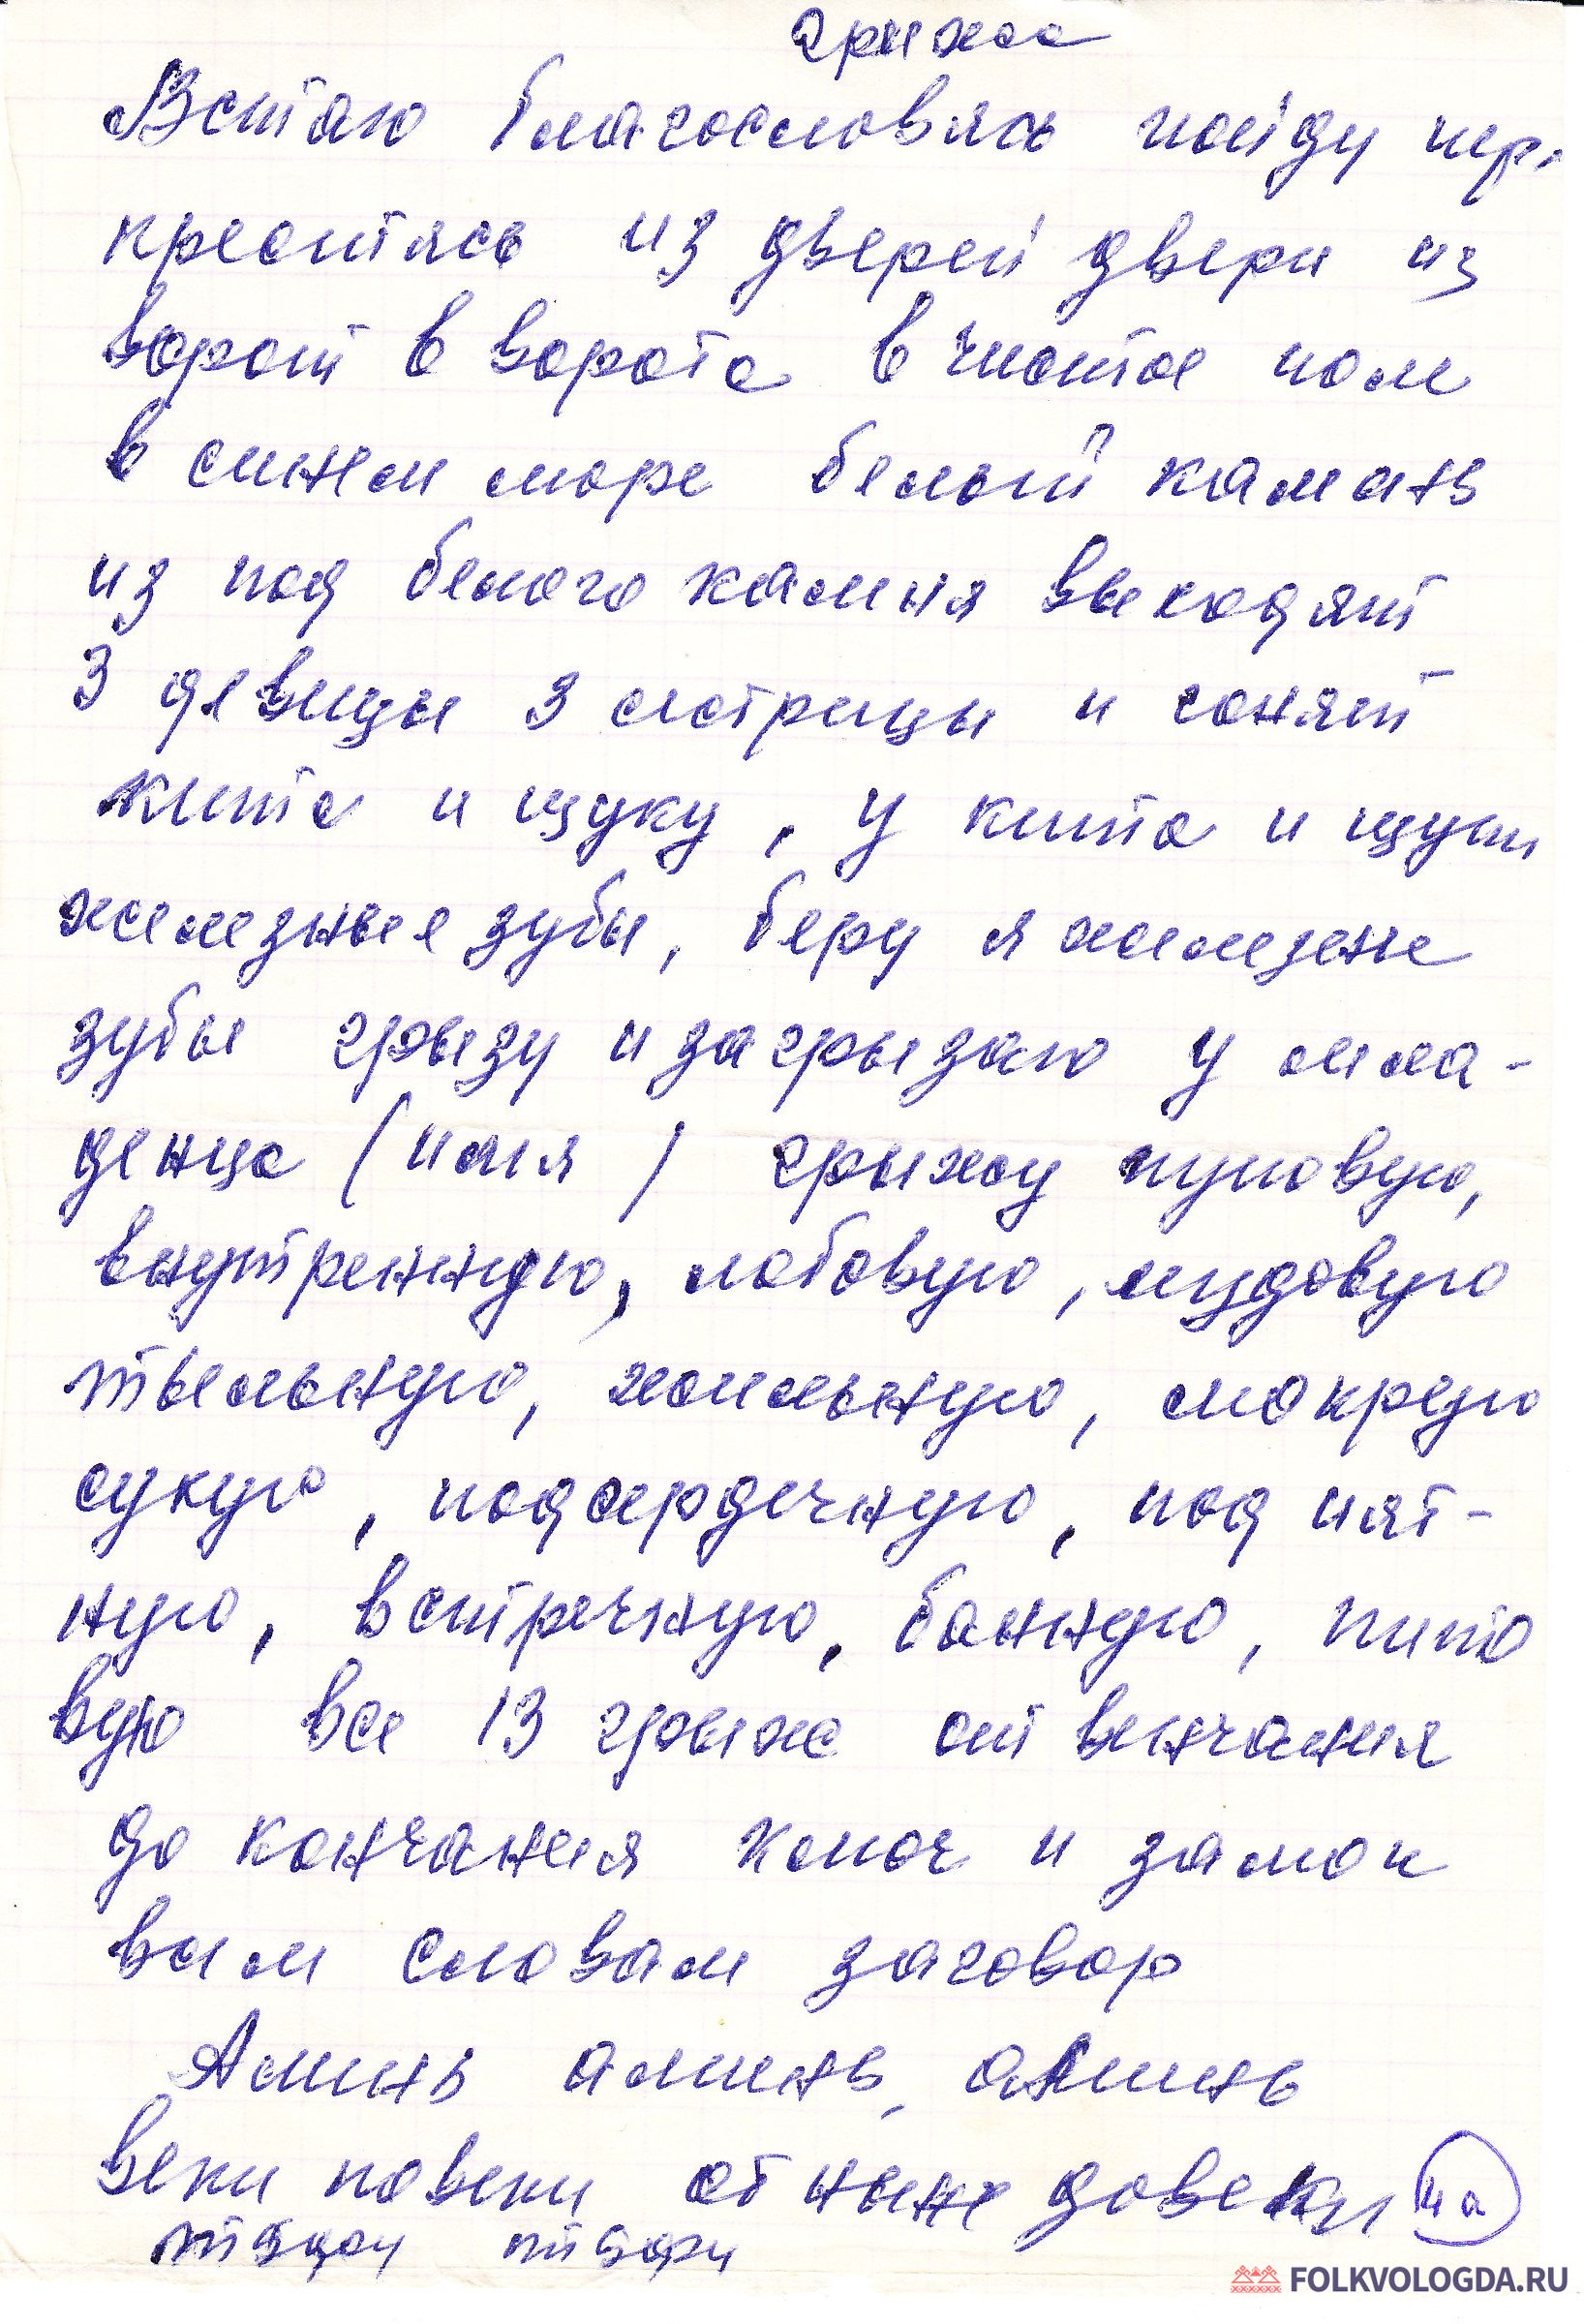 грыжа
Встаю благословясь пойду пер-
крестясь из дверей двери из
ворот в ворота в чистое поле
в синем море белый камань
из под белого камня выходят
3 девицы 3 сестрицы и гонят
кита и щуку, у кита и щуки
железные зубы, беру я железны
зубы грызу и загрызаю у мла-
денца (имя) грыжу пуповую,
внутренную, лобовую, мудовую
тыльную, жильную, мокрую
сухую, подсердечную, под пят-
ную, встречную, банную, пито
вую все 13 грыж от венчания
до кончания ключ и замок
вам словам заговор
Аминь аминь, аминь
веки повеки от ныне довеки 4а
FOLKVOLOGDA.RU